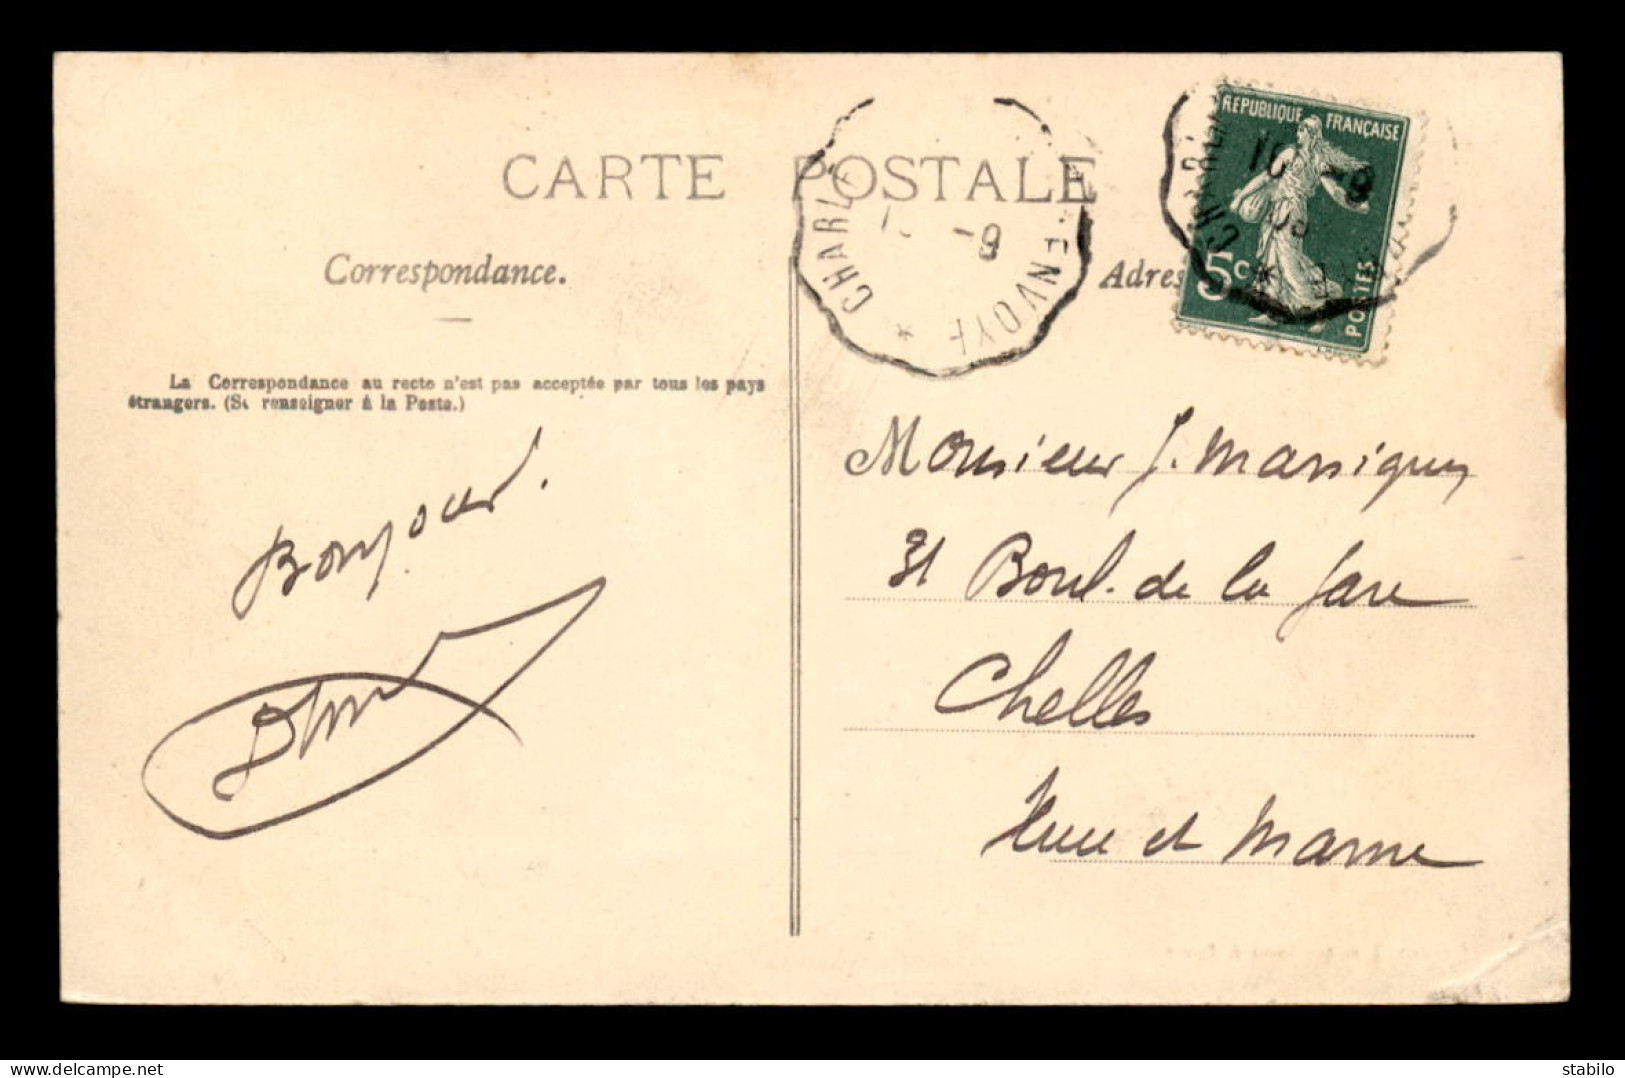 CARTE POSTALE
Correspondance.
La Correspondance au recto n'est pas acceptée par tous les pays
étrangers. (Se renseigner à la Poste.)
Bonjour.
Adres
RÉPUBLIQUE FRANÇAISE
5c
POSTES
10 -9
CHARLE
Monsieur J.
31 Boul. de la Gare
Chelles
Seine et Marne
delcampe.net
stabilo